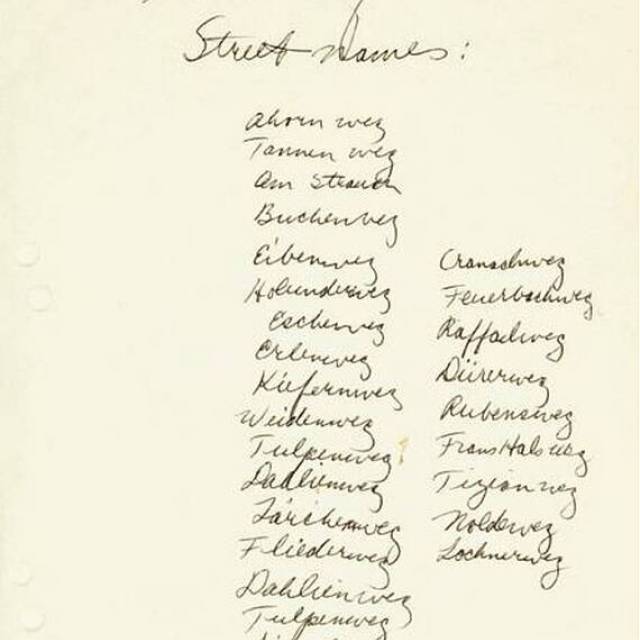 Street names:
Ahorn weg
Tannen weg
Am Strauch
Buchenweg
Eibenweg
Holunderweg
Eschenweg
Erlenweg
Kiefernweg
Weidenweg
Tulpenweg
Dahlienweg
Lärchenweg
Fliederweg
Dahlienweg
Tulpenweg
Cranachweg
Feuerbachweg
Raffaelweg
Dürerweg
Rubensweg
Frans Hals weg
Tizianweg
Noldeweg
Lochnerweg